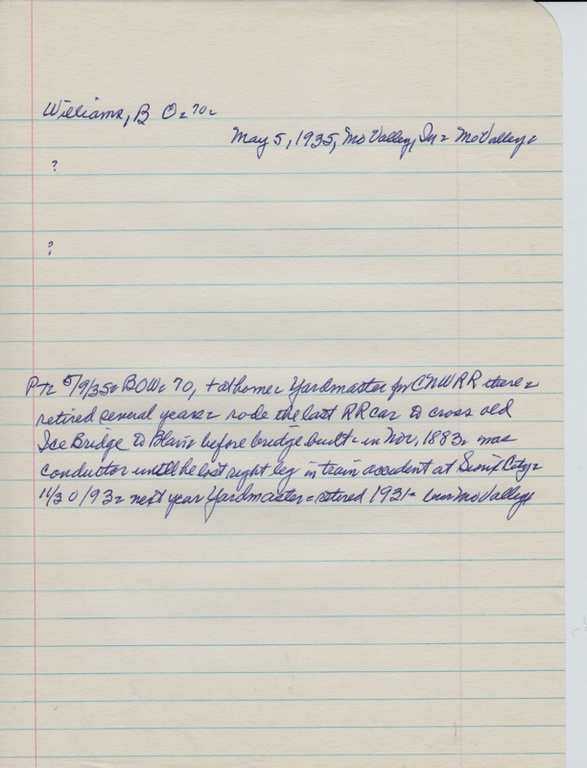 Williams, B O = 70 =
May 5, 1935, Mo Valley, Ia = Mo Valley =
?
?
Ptr 5/9/35 = BOW = 70, + at home = Yardmaster for CNWRR there =
retired several years = rode the last RR car to cross old
Ice Bridge to Blair before bridge built = in Nov, 1883 = was
conductor until he lost right leg in train accident at Sioux City =
11/30/93 = next year Yardmaster = retired 1931 = Mo Valley